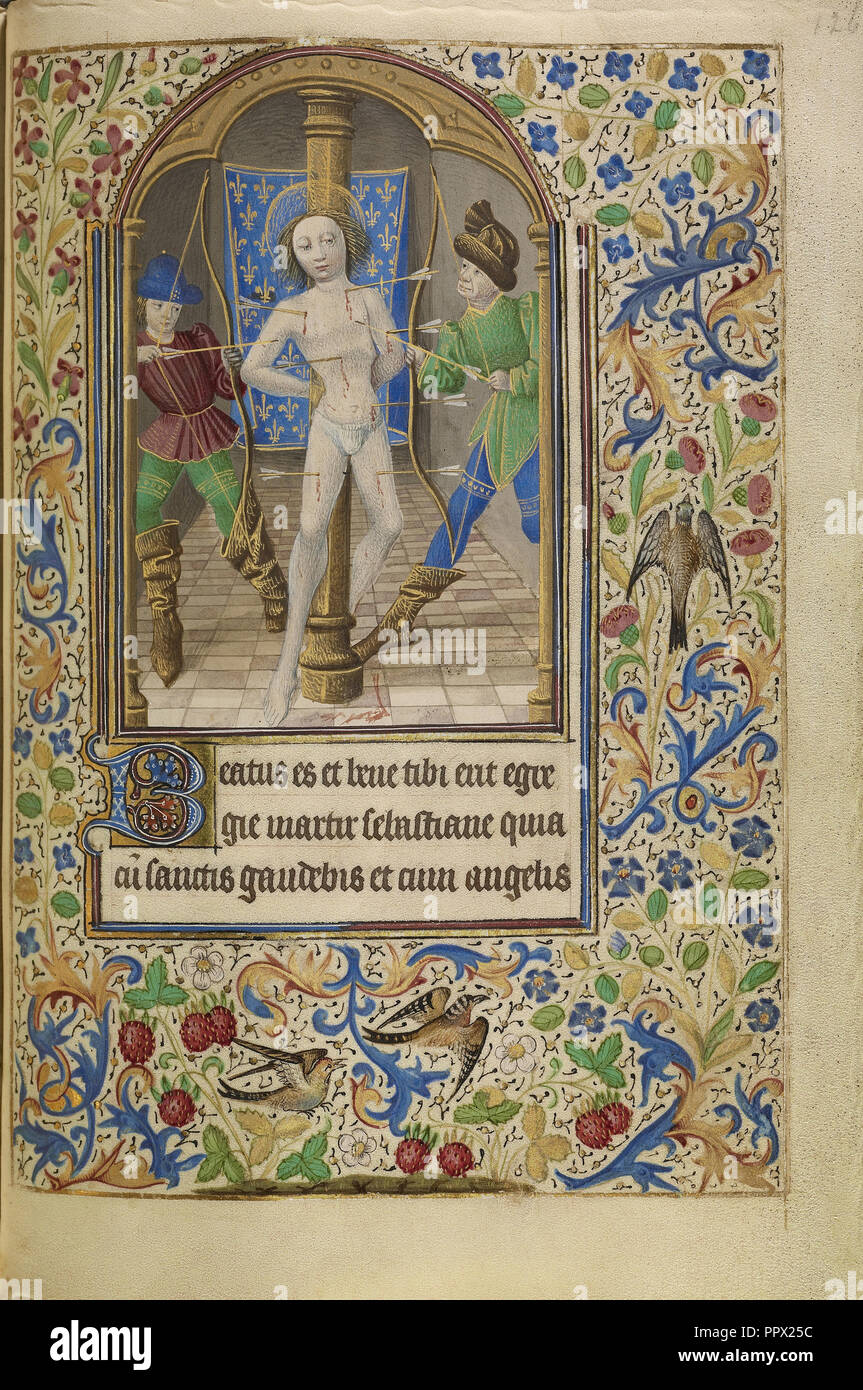 126
Beatus es et bene tibi erit egre
gie martir sebastiane quia
cū sanctis gaudebis et cum angelis
alamy
alamy
Image ID: PPX25C
www.alamy.com